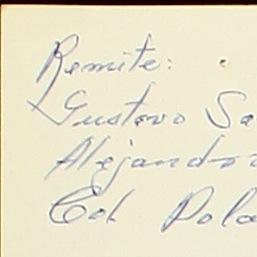 Remite:
Gustavo Sa
Alejandro
Col Pola